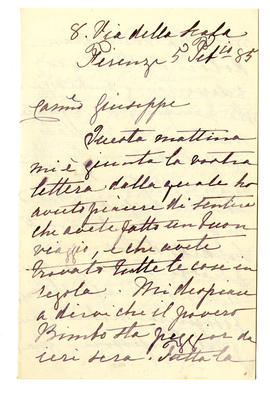 8. Via della Scala
Firenze 5 85
Giuseppe
Questa mattina
mi è giunta la vostra
lettera dalla quale ho
avuto piacere di sentire
che avete fatto un buon
viaggio, e che avete
trovato tutte le cose in
regola. Mi dispiace
a dirvi che il povero
Bimbo sta peggior da
ieri sera. Tutta la